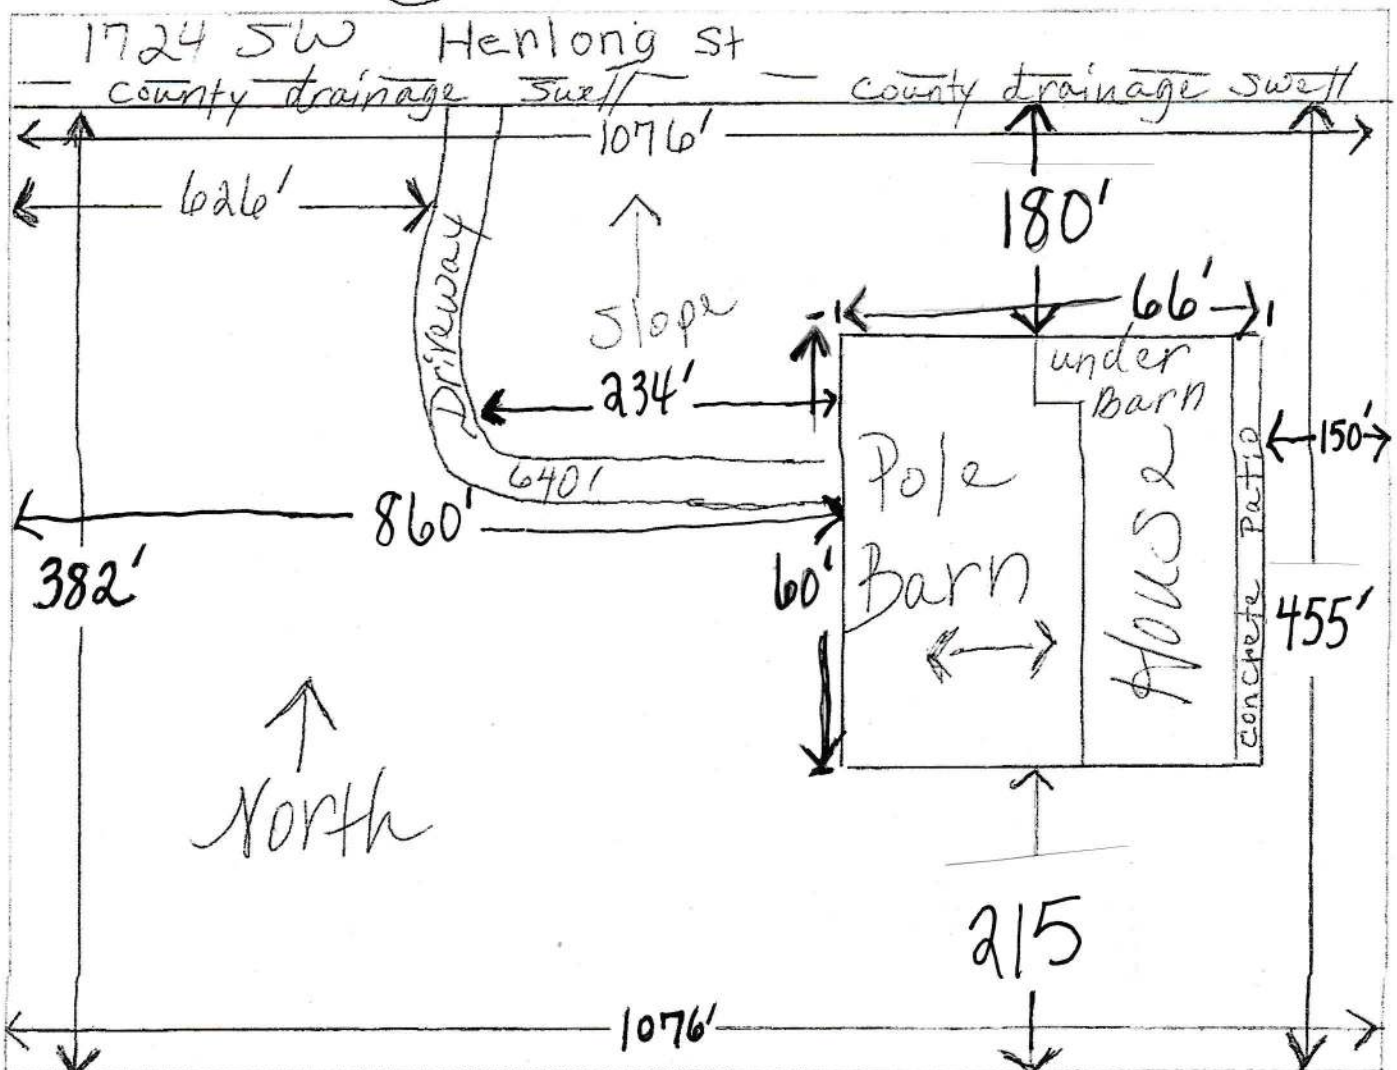 1724 SW Henlong St
county drainage swell county drainage swell
1076'
626'
180'
Driveway
Slope
66'
under
Barn
234'
150'
640'
Pole
Barn
House
Concrete Patio
860'
382'
60'
455'
North
215
1076'